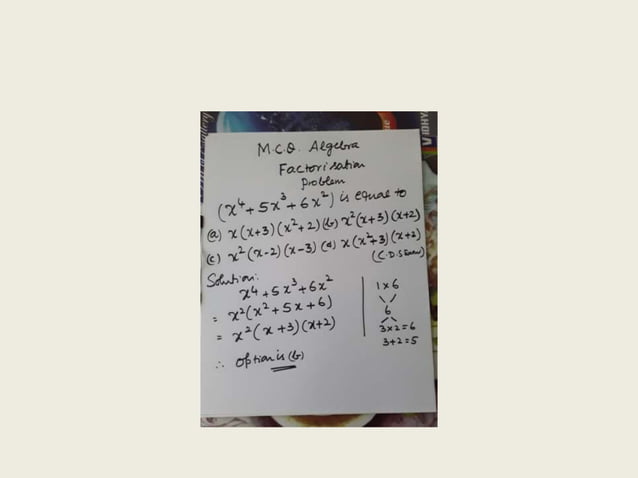 M.C.Q. Algebra
Factorisation
Problem
(x⁴+5x³+6x²) is equal to
(a) x(x+3)(x²+2) (b) x²(x+3)(x+2)
(c) x²(x-2)(x-3) (d) x(x²+3)(x+2)
(C.D.S Exam)
Solution:
x⁴+5x³+6x²
= x²(x²+5x+6)
= x²(x+3)(x+2)
∴ option is (b)
1x6
6
3x2=6
3+2=5
VIDHYA